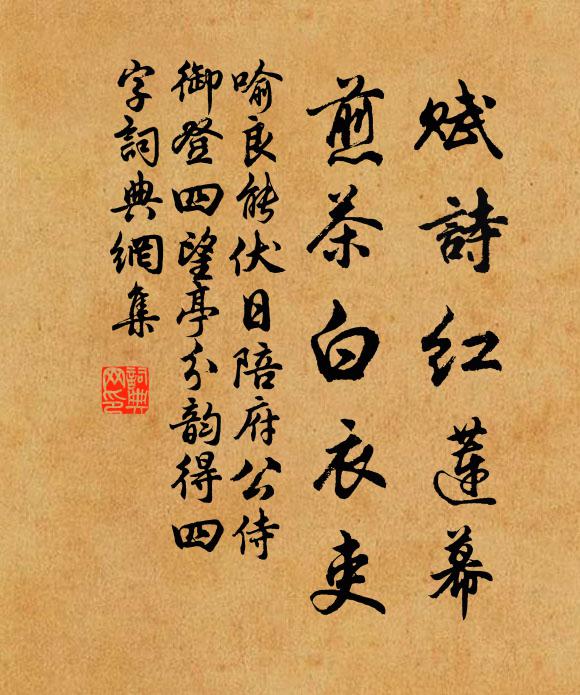 赋詩红蓮幕
煎茶白衣吏
喻良能伏日陪府公侍
御登四望亭分韵得四
字詞典網集
詞典
网印